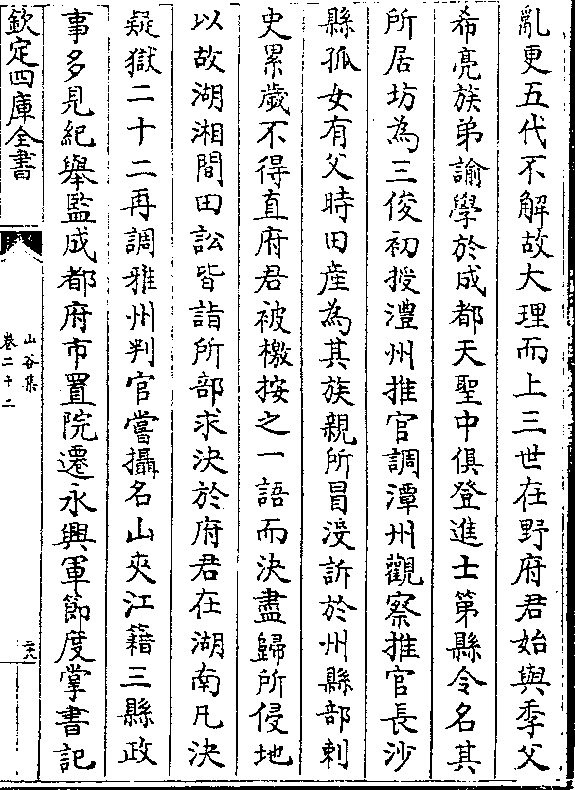 亂更五代不解故大理而上三世在野府君始與季父
希亮族弟諭學於成都天聖中俱登進士第縣令名其
所居坊為三俊初授澧州推官調潭州觀察推官長沙
縣孤女有父時田産為其族親所冒沒訴於州縣部刺
史累歲不得直府君被檄按之一語而決盡歸所侵地
以故湖湘間田訟皆詣所部求決於府君在湖南凡決
疑獄二十二再調雅州判官嘗攝名山夾江籍三縣政
事多見紀舉監成都府市置院遷永興軍節度掌書記
欽定四庫全書
山谷集
卷二十二